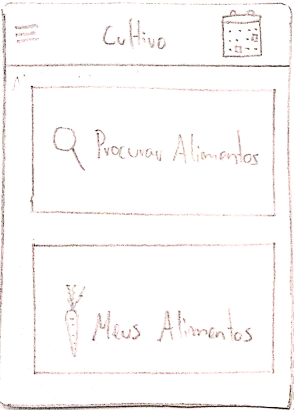 Cultivo
Procurar Alimentos
Meus Alimentos